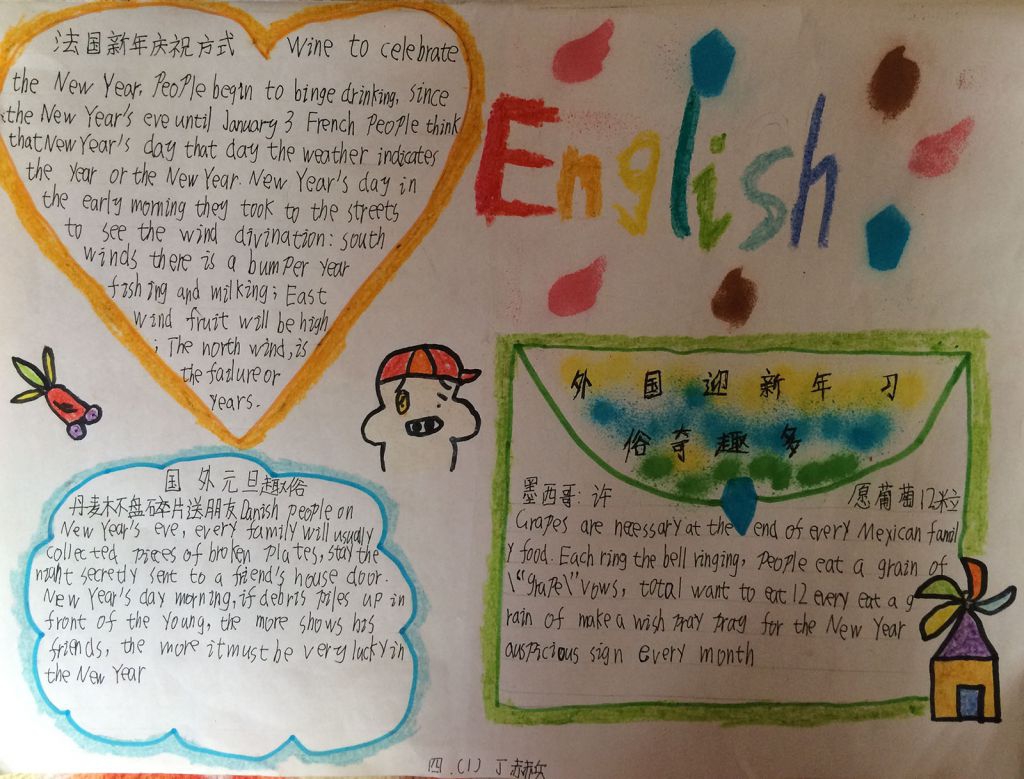 法国新年庆祝方式 Wine to celebrate
the New Year. People begin to binge drinking, since
the New Year's eve until January 3 French People think
that New Year's day that day the weather indicates
the Year or the New Year. New Year's day in
the early morning they took to the streets
to see the wind divination: south
winds there is a bumper year
fishing and milking; East
wind fruit will be high
; The north wind, is
the failure or
years.
English
外国迎新年习
俗奇趣多
墨西哥: 许愿葡萄12粒
Grapes are necessary at the end of every Mexican famil
y food. Each ring the bell ringing, People eat a grain of
\"Grape\" vows, total want to eat 12 every eat a g
rain of make a wish Pray Pray for the New Year
auspicious sign every month
国外元旦趣俗
丹麦 盘碎片送朋友 Danish people on
New Year's eve, every family will usually
collected pieces of broken plates, stay the
night secretly sent to a friend's house door.
New Year's day morning, if debris piles up in
front of the Young, the more shows his
friends, the more it must be very lucky in
the New Year
四.(1) 丁赫